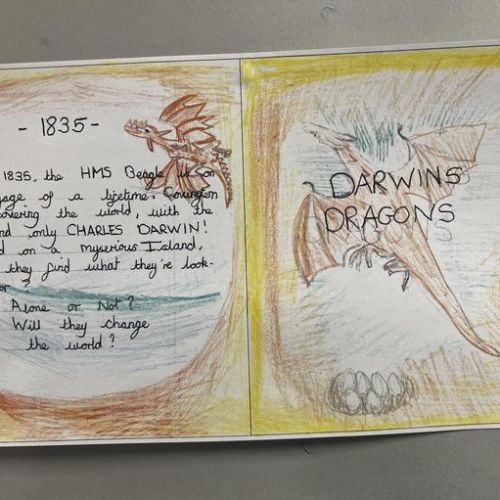 - 1835 -
1835, the HMS Beagle is on
yage of a lifetime. Covington
covering the world, with the
nd only CHARLES DARWIN!
d on a myserious Island,
they find what they're look-
or ?
Alone or Not?
Will they change
the world?
DARWINS
DRAGONS